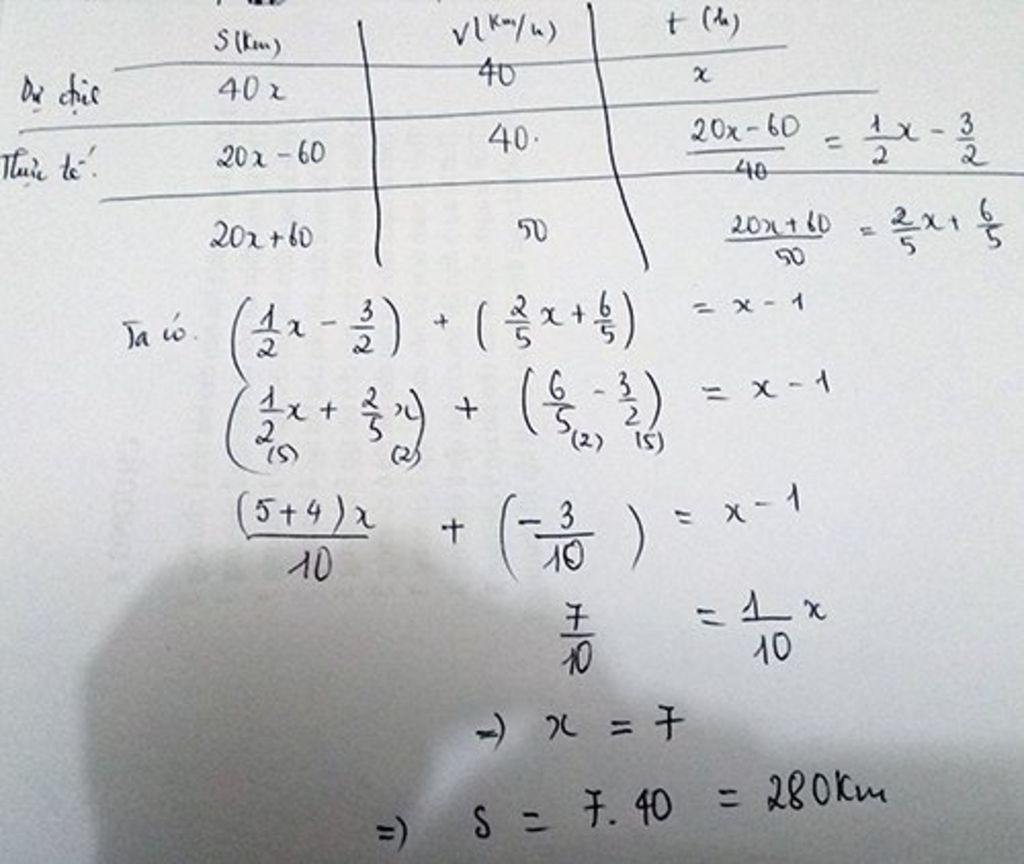 S(Km) V(Km/h) t (h)
Dự định 40x 40 x
Thực tế: 20x - 60 40. (20x - 60)/40 = 1/2 x - 3/2
20x + 60 50 (20x + 60)/50 = 2/5 x + 6/5
Ta có. (1/2 x - 3/2) + (2/5 x + 6/5) = x - 1
(1/2 x + 2/5 x) + (6/5 - 3/2) = x - 1
(5) (2) (2) (5)
(5+4)x/10 + (-3/10) = x - 1
7/10 = 1/10 x
=) x = 7
=) S = 7.40 = 280Km